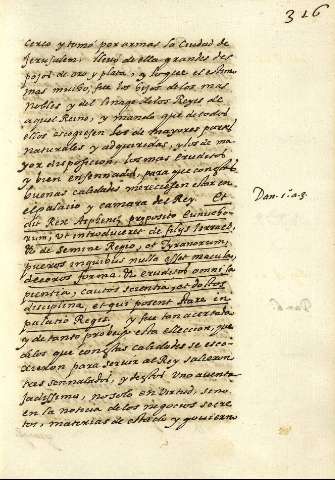 316
cerco y tomó por armas la Ciudad de
Jerusalem: llevó de ella grandes des
pojos de oro y plata, y lo que es estimó
mas mucho, fue los hijos de los mas
nobles y del linage de los Reyes de
aquel Reino, y mandó que de todos
ellos escogiesen los de mayores partes
naturales y adquiridas, y los de ma
yor disposicion, los mas eruditos
y bien enseñados, para que con estas
buenas calidades mereciessen estar en
el palacio y camara del Rey. Et
Dan. 1. a. 3
ait Rex Asphenez preposito Eunucho
rum, ut introduceret de filijs Israel,
& de Semine Regio, et Tyranorum,
pueros in quibus nulla esset macula,
decoros forma, & eruditos omni sa
pientia, cautos scientia, et doctos
disciplina, et qui possent stare in
palatio Regis. y fue tan acertada
y de tanto probecho esta eleccion, que
de los que con estas calidades se esco
gieron para servir al Rey salieron
tres sennalados, y de estos uno aventa
jadissimo, no solo en virtud, sino
en la noticia de los negocios secre
tos, materias de estado y govierno